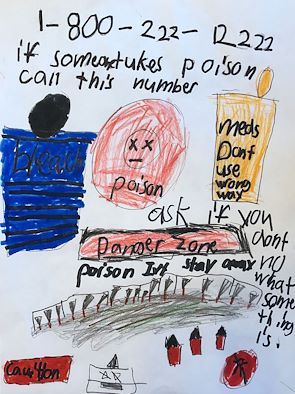 1-800-222-1222
if someontukes poison
call this number
bleach
xx
poison
meds
Dont
use
wrong
way
ask if you
dont
no
what
some
thing
is.
Danger Zone
poison Ivy stay away
Caution